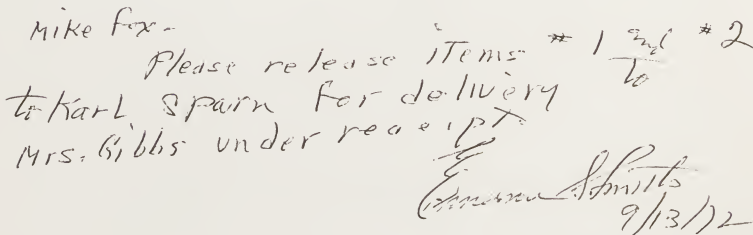 Mike Fox-
Please release items #1 and #2
to Karl Sparn for delivery to
Mrs. Gibbs under receipt.
Smith
9/13/72